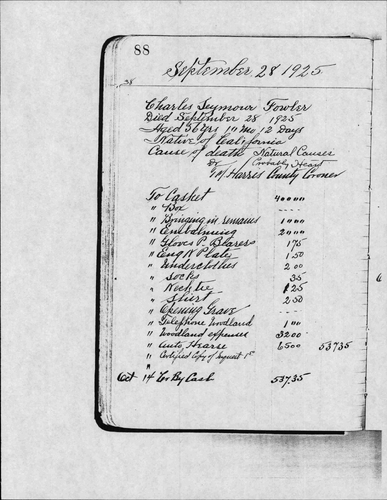 88
September 28 1925
38
Charles Seymour Fowler
Died September 28 1925
Aged 56 yrs 11 Mo 12 Days
Native of California
Cause of death Natural Causes
Probably Heart
Dr
M Harris County Coroner
To Casket 400 00
" Box ----
" Bringing in remains 10 00
" Embalming 20 00
" Gloves P. Bearers 1 75
" Eng N Plate 1 50
" Underclothes 2 00
" Socks 35
" Neck tie 1 25
" Shirt 2 50
" Opening Grave ----
" Telephone Woodland 1 00
" Woodland expenses 32 00
" Auto Hearse 65 00 537 35
" Certified Copy of 1 st
"
Oct 14 By Cash 537.35